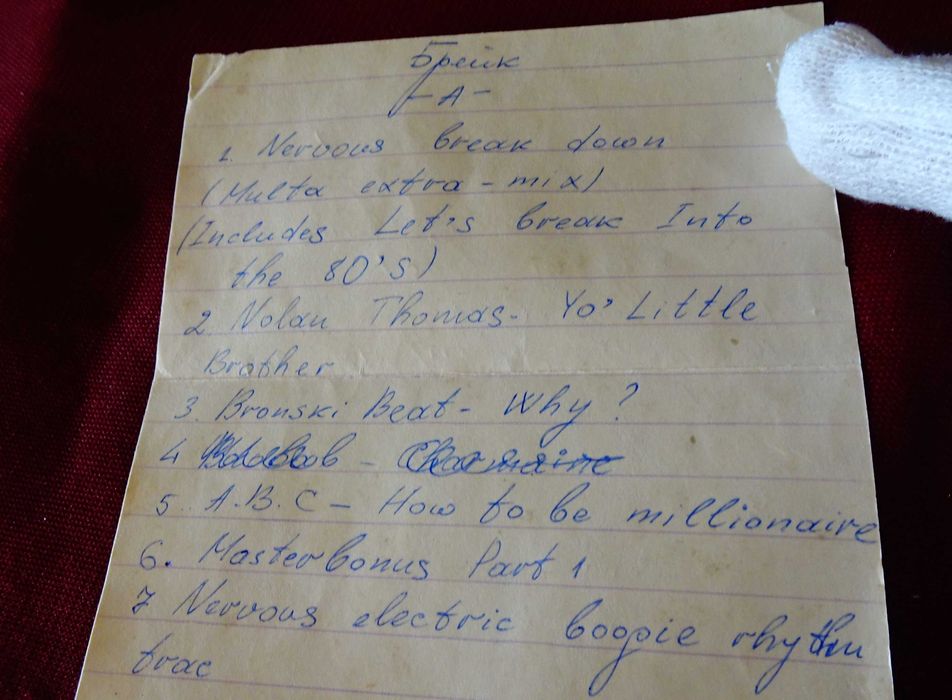 Брейк
- А -
1. Nervous break down
(Multa extra - mix)
(Includes Let's break Into
the 80's)
2. Nolan Thomas - Yo' Little
Brother
3. Bronski Beat - Why?
4 -
5. A.B.C - How to be millionaire
6. Masterbonus Part 1
7 Nervous electric boogie rhythm
trac